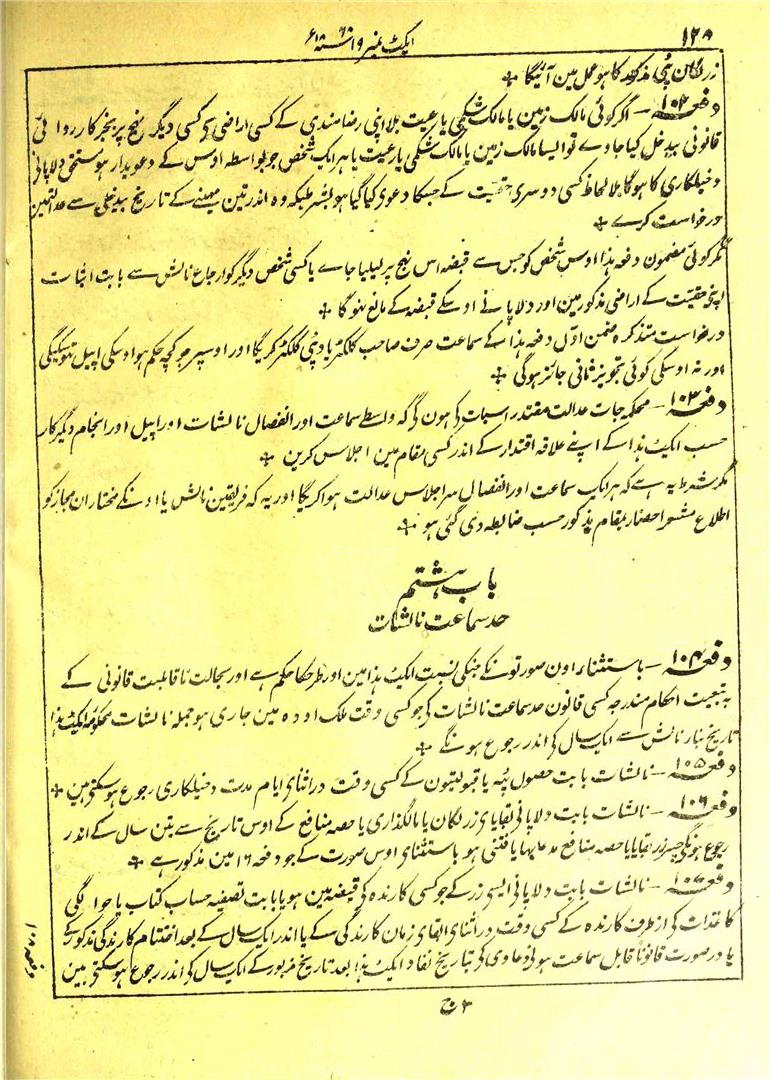 ۱۲۸
ایکٹ نمبر ۱۹ سنہ ۱۸۶۸ع
زر لگان پٹی مذکور کا ہو عمل مین آئیگا ✢
دفعہ ۱۰۲ — اگر کوئی مالک زمین یا مالک شکمی یا رعیت بلا اپنی رضامندی کے کسی اراضی سے کسی دیگر نہج پر بجز کارروائی
قانونی بیدخل کیا جاوے تو ایسا مالک زمین یا مالک شکمی یا رعیت یا ہر ایک شخص جو بواسطہ اوس کے دعویدار ہو مستحق دلاپانی
دخیلکاری کا ہوگا بلا لحاظ کسی دوسری حقیت کے جسکا دعوی کیا گیا ہو بشرطیکہ وہ اندر تین مہینے کے تاریخ بیدخلی سے عدالت مین
درخواست کرے ✢
مگر کوئی مضمون دفعہ ہذا اوس شخص کو جس سے قبضہ اس نہج پر لیلیا جاے یا کسی شخص دیگر کو ارجاع نالش سے بابت اثبات
اپنی حقیت کے اراضی مذکور مین اور دلاپانے اوسکے قبضہ کے مانع نہوگا ✢
درخواست متذکرہ ضمن اول دفعہ ہذا کے سماعت صرف صاحب کلکٹر یا ڈپٹی کلکٹر کریگا اور اوسپر جو کچھ حکم ہو اوسکی اپیل نہوسکیگی
اور نہ اوسکی کوئی تجویز ثانی جائز ہوگی ✢
دفعہ ۱۰۳ — محکمہ جات عدالت مقتدر اسبات کی ہون گی کہ واسطے سماعت اور انفصال نالشات اور اپیل اور انجام دیگر کار
حسب ایکٹ ہذا کے اپنے علاقہ اقتدار کے اندر کسی مقام مین اجلاس کرین ✢
مگر شرط یہ ہے کہ ہر ایک سماعت اور انفصال سر اجلاس عدالت ہوا کریگا اور یہ کہ فریقین نالش یا اونکے مختاران مجاز کو
اطلاع مشعر احضار بمقام مذکور حسب ضابطہ دی گئی ہو ✢
باب ہشتم
حد سماعت نالشات
دفعہ ۱۰۴ — باستثناء اون صورتونکے جنکی نسبت ایکٹ ہذا مین اور طرحکا حکم ہے اور بحالت ناقابلیت قانونی کے
بہ تبعیت احکام مندرجہ کسی قانون حد سماعت نالشات کی جو کسی وقت ملک اودہ مین جاری ہو جملہ نالشات محکومہ ایکٹ ہذا
تاریخ بنار نالش سے ایک سال کی اندر رجوع ہونگے ✢
دفعہ ۱۰۵ — نالشات بابت حصول پٹہ یا قبولیتون کے کسی وقت دراثنای ایام مدت دخیلکاری رجوع ہوسکتی ہین ✢
دفعہ ۱۰۶ — نالشات بابت دلاپانی بقایای زر لگان یا مالگذاری یا حصہ منافع کے اوس تاریخ سے تین سال کے اندر
رجوع ہونگی جبزر بقایا یا حصہ منافع مدعابہا یافتنی ہو باستثنای اوس صورت کے جو دفعہ ۱۶ مین مذکور ہے ✢
دفعہ ۱۰۷ — نالشات بابت دلاپانی ایسی زر کے جو کسی کارندہ کی قبضہ مین ہو یا بابت تصفیہ حساب کتاب یا حوالگی
کاغذات کی از طرف کارندہ کے کسی وقت دراثنای القای زمان کارندگی کے یا اندر ایک سال کے بعد اختتام کارندگی مذکور کے
یا درصورت قانوناً قابل سماعت ہونی دعاوی کی تاریخ نفاذ ایکٹ ہذا بعد تاریخ مزبور کے ایک سال کی اندر رجوع ہوسکتی ہین
دفعہ ۱۰۸
۳ ج